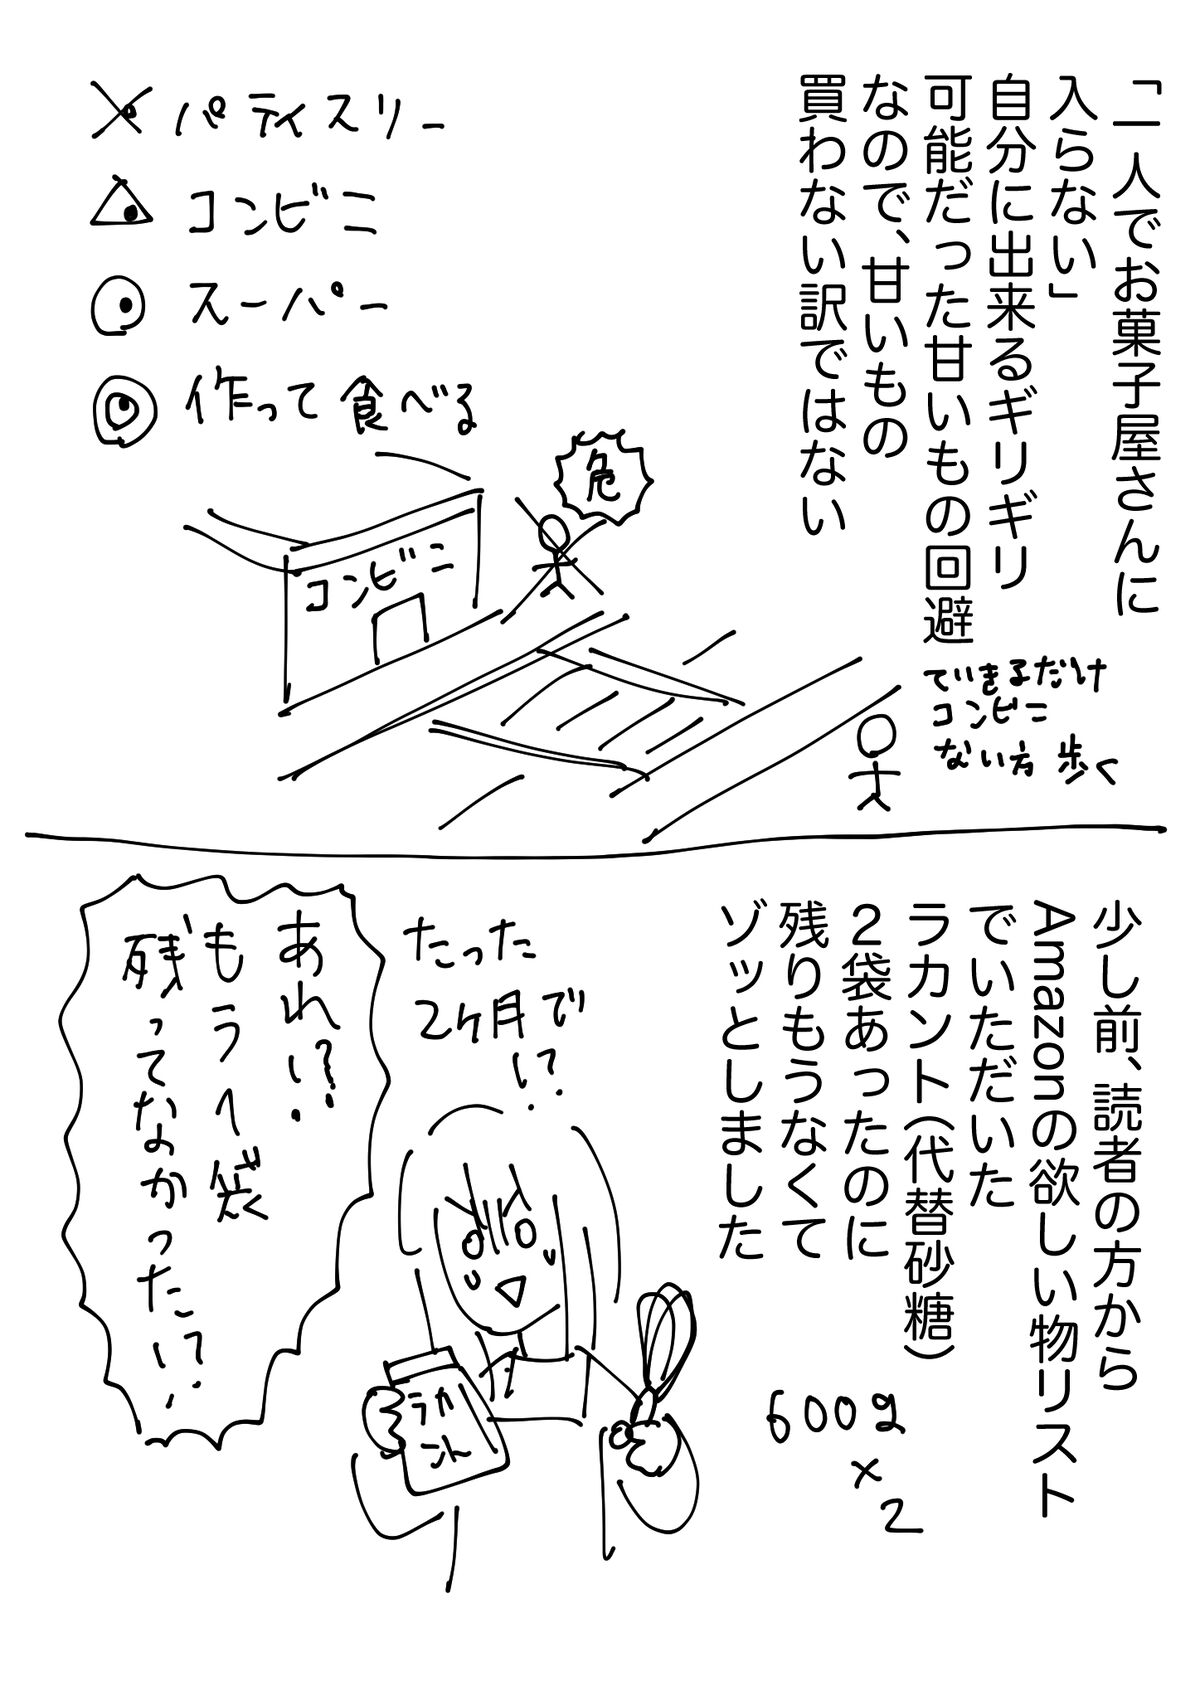 「一人でお菓子屋さんに
入らない」
自分に出来るギリギリ
可能だった甘いもの回避
なので、甘いもの
買わない訳ではない
パティスリー
コンビニ
スーパー
作って食べる
危
コンビニ
できるだけ
コンビニ
ない方歩く
少し前、読者の方から
Amazonの欲しい物リスト
でいただいた
ラカント(代替砂糖)
2袋あったのに
残りもうなくて
ゾッとしました
600g
×
2
たった
2ヶ月で
!?
あれ!?
もう1袋
残ってなかった!?
ラカ
ント